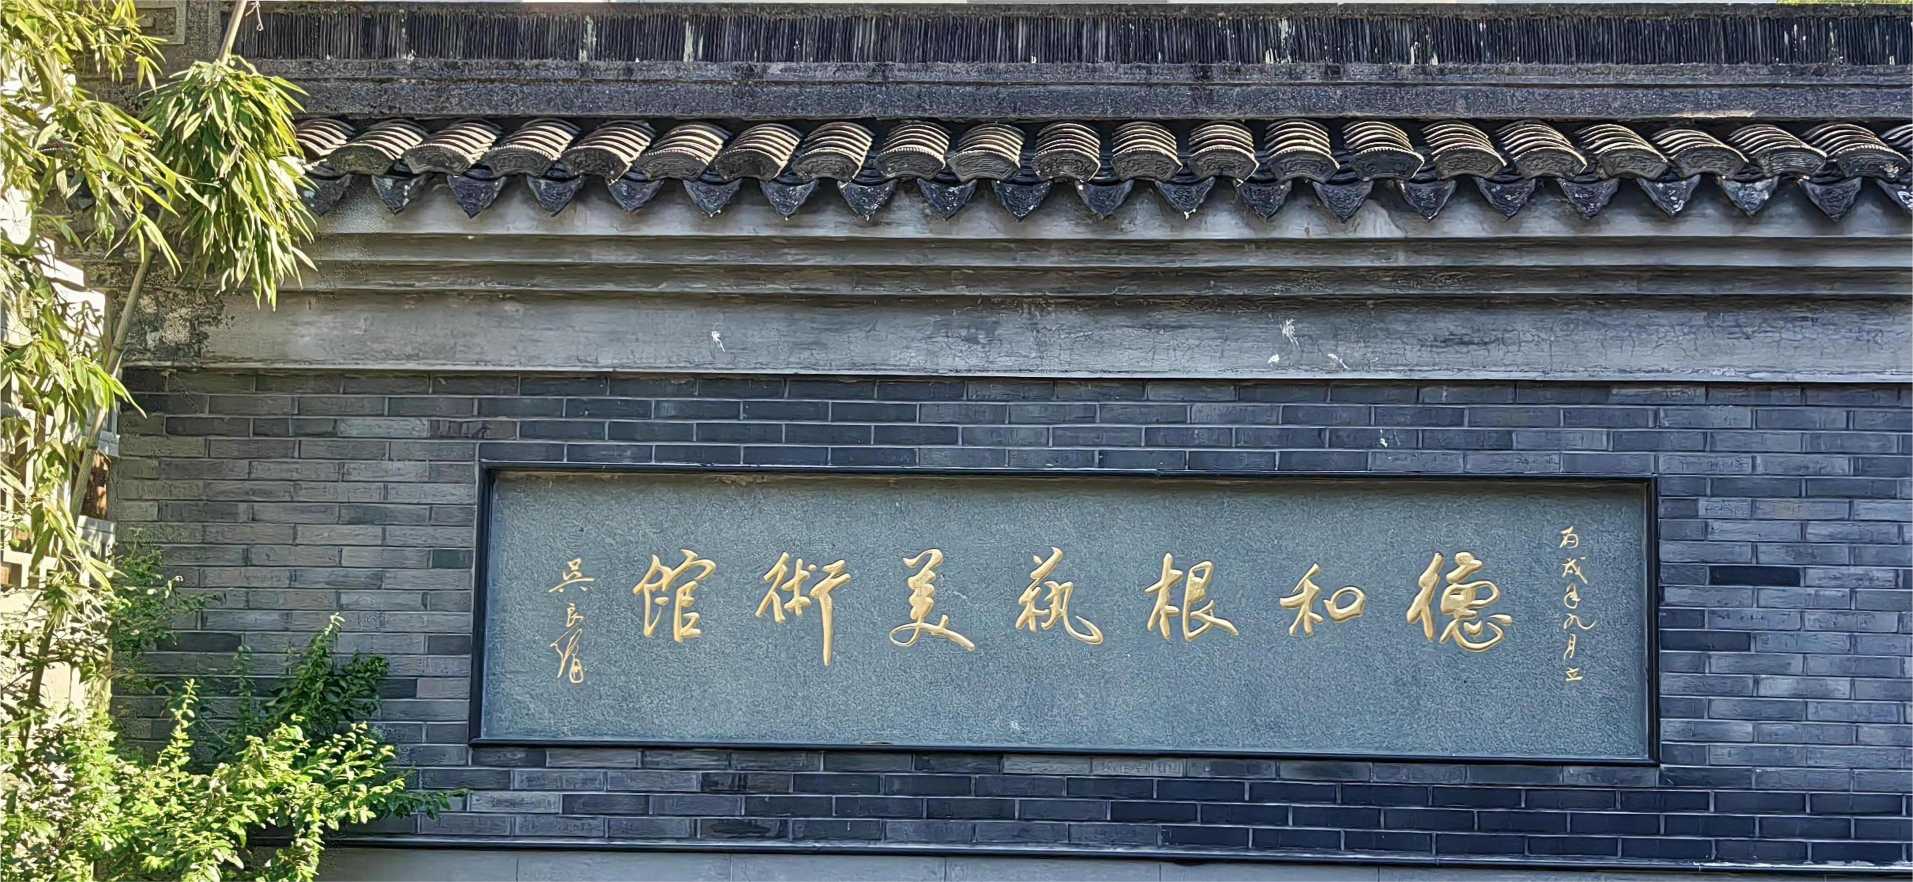 丙戌年九月立
德和根藝美術館
吳良鏞